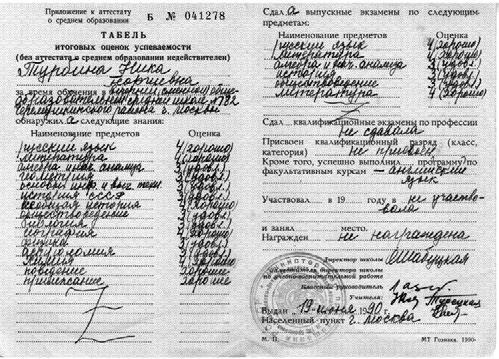 Приложение к аттестату
о среднем образовании
Б № 041278
ТАБЕЛЬ
итоговых оценок успеваемости
(без аттестата о среднем образовании недействителен)
Турбина Ника
Георгиевна
за время обучения в вечерней (сменной) обще-
образовательной средней школе № 782
Черемушкинского района г. Москвы
обнаружил а следующие знания:
Наименование предметов Оценка
русский язык 4 (хорошо)
литература 4 (хорошо)
алгебра и нач. анализа 3 (удовл)
геометрия 3 (удовл)
основы инф. и выч. техн. 3 (удовл)
история СССР
всемирная история
обществоведение
биология 3 (удовл)
география 4 (хорошо)
физика 3 (удовл)
астрономия
химия
поведение хорошее
прилежание хорошее
Z
Сдал а выпускные экзамены по следующим
предметам:
Наименование предметов Оценка
русский язык 4 (хорошо)
литература 4 (хорошо)
алгебра и нач. анализа 3 (удовл)
история
обществоведение
литература 4 (хорошо)
Сдал квалификационные экзамены по профессии
не сдавала
Присвоен квалификационный разряд (класс,
категория) не присвоен
Кроме того, успешно выполнил программу по
факультативным курсам - английский
язык
Участвовал в 19 году в не участво-
вала
и занял место.
Награжден не награждена
Директор школы
Заместитель директора школы
по учебно-воспитательной работе
Классный руководитель
Учителя:
Выдан 19 июня 1990 г.
Населенный пункт г. Москва
М. П.
МТ Гознака. 1990